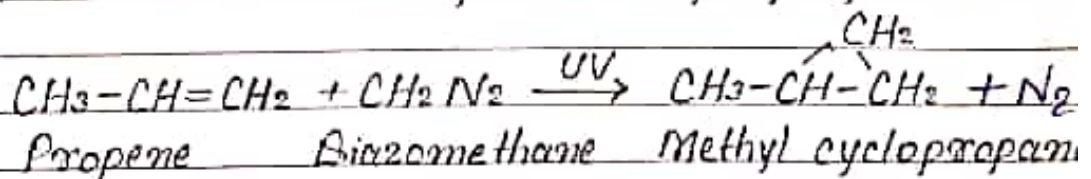 CH2
CH3-CH=CH2 + CH2 N2 UV→ CH3-CH-CH2 + N2
Propene Diazomethane Methyl cyclopropan